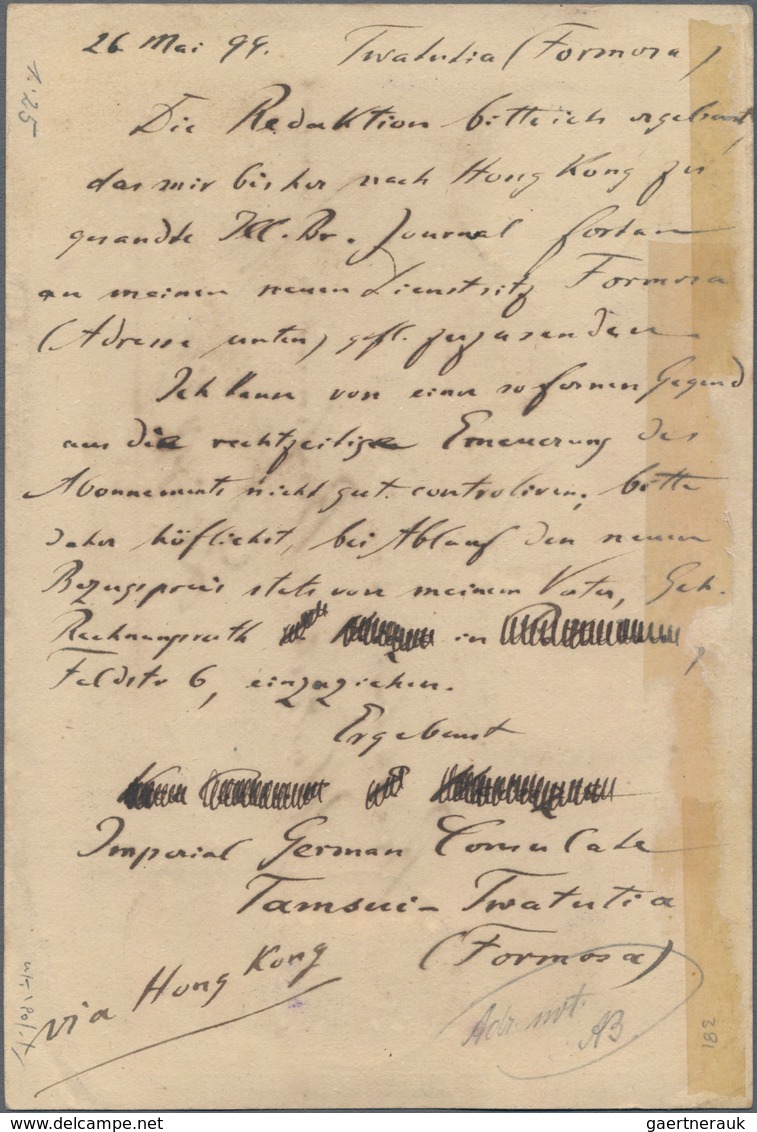 26 Mai 99. Twatutia (Formosa)
1.25
Die Redaktion bitte ich ergebenst,
das mir bisher nach Hong Kong zu
gesandte Ill. Br. Journal fortan
an meinen neuen Dienstsitz Formosa
(Adresse unten) gefl. zuzusenden
Ich kann von einer so fernen Gegend
aus die rechtzeitige Erneuerung des
Abonnements nicht gut controliren, bitte
daher höflichst, bei Ablauf den neuen
Bezugspreis stets von meinem Vater, Geh.
Rechnungsrath in ,
Feldstr 6, einzuziehen.
Ergebenst
Imperial German Consulate
Tamsui - Twatutia
(Formosa)
via Hong Kong
Adr. not.
AB
381
gaertnerauk